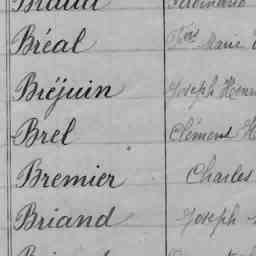 Bréal Marie
Bréjuin Joseph Henri
Brel Clément
Bremier Charles
Briand Joseph